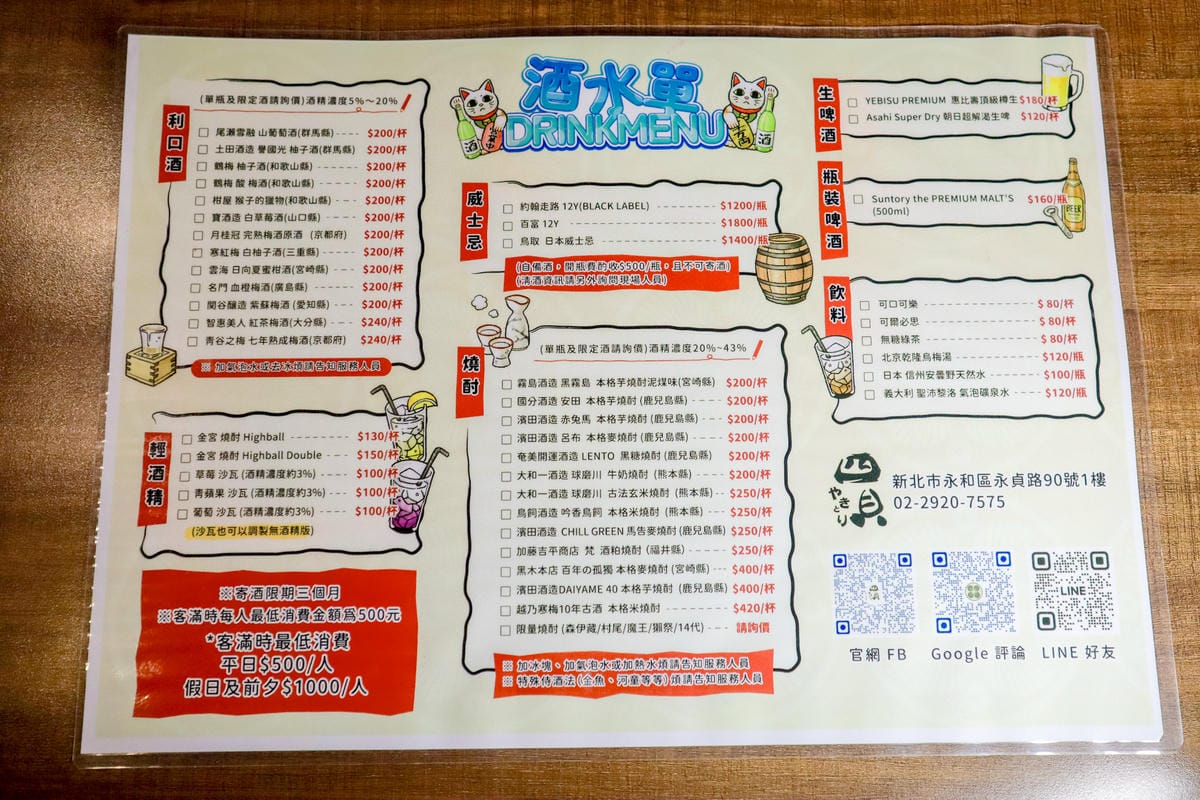 酒水單
DRINKMENU
利口酒
(單瓶及限定酒請詢價)酒精濃度5%～20%
尾瀨雪融 山葡萄酒(群馬縣) $200/杯
土田酒造 譽國光 柚子酒(群馬縣) $200/杯
鶴梅 柚子酒(和歌山縣) $200/杯
鶴梅 酸 梅酒(和歌山縣) $200/杯
柑屋 猴子的獵物(和歌山縣) $200/杯
寶酒造 白草莓酒(山口縣) $200/杯
月桂冠 完熟梅酒原酒 (京都府) $200/杯
寒紅梅 白柚子酒(三重縣) $200/杯
雲海 日向夏蜜柑酒(宮崎縣) $200/杯
名門 血橙梅酒(廣島縣) $200/杯
関谷釀造 紫蘇梅酒(愛知縣) $200/杯
智惠美人 紅茶梅酒(大分縣) $240/杯
青谷之梅 七年熟成梅酒(京都府) $240/杯
※ 加氣泡水或去冰煩請告知服務人員
輕酒精
金宮 燒酎 Highball $130/杯
金宮 燒酎 Highball Double $150/杯
草莓 沙瓦 (酒精濃度約3%) $100/杯
青蘋果 沙瓦 (酒精濃度約3%) $100/杯
葡萄 沙瓦 (酒精濃度約3%) $100/杯
(沙瓦也可以調製無酒精版)
※寄酒限期三個月
※客滿時每人最低消費金額為500元
*客滿時最低消費
平日$500/人
假日及前夕$1000/人
威士忌
約翰走路 12Y(BLACK LABEL) $1200/瓶
百富 12Y $1800/瓶
鳥取 日本威士忌 $1400/瓶
(自備酒，開瓶費酌收$500/瓶，且不可寄酒)
(清酒資訊請另外詢問現場人員)
燒酎
(單瓶及限定酒請詢價)酒精濃度20%~43%
霧島酒造 黑霧島 本格芋燒酎泥煤味(宮崎縣) $200/杯
國分酒造 安田 本格芋燒酎 (鹿兒島縣) $200/杯
濱田酒造 赤兔馬 本格芋燒酎 (鹿兒島縣) $200/杯
濱田酒造 呂布 本格麥燒酎 (鹿兒島縣) $200/杯
奄美開運酒造 LENTO 黑糖燒酎 (鹿兒島縣) $200/杯
大和一酒造 球磨川 牛奶燒酎 (熊本縣) $200/杯
大和一酒造 球磨川 古法玄米燒酎 (熊本縣) $250/杯
鳥飼酒造 吟香鳥飼 本格米燒酎 (熊本縣) $250/杯
濱田酒造 CHILL GREEN 馬告麥燒酎(鹿兒島縣) $250/杯
加藤吉平商店 梵 酒粕燒酎 (福井縣) $250/杯
黑木本店 百年の孤獨 本格麥燒酎 (宮崎縣) $400/杯
濱田酒造DAIYAME 40 本格芋燒酎 (鹿兒島縣) $400/杯
越乃寒梅10年古酒 本格米燒酎 $420/杯
限量燒酎 (森伊蔵/村尾/魔王/獺祭/14代) 請詢價
※ 加冰塊、加氣泡水或加熱水煩請告知服務人員
※ 特殊侍酒法(金魚、河童等等)煩請告知服務人員
生啤酒
YEBISU PREMIUM 惠比壽頂級樽生 $180/杯
Asahi Super Dry 朝日超解渴生啤 $120/杯
瓶裝啤酒
Suntory the PREMIUM MALT'S $160/瓶
(500ml)
BEER
飲料
可口可樂 $ 80/杯
可爾必思 $ 80/杯
無糖綠茶 $ 80/杯
北京乾隆烏梅湯 $120/瓶
日本 信州安曇野天然水 $100/瓶
義大利 聖沛黎洛 氣泡礦泉水 $120/瓶
四貝
やきとり
新北市永和區永貞路90號1樓
02-2920-7575
LINE
官網 FB
Google 評論
LINE 好友